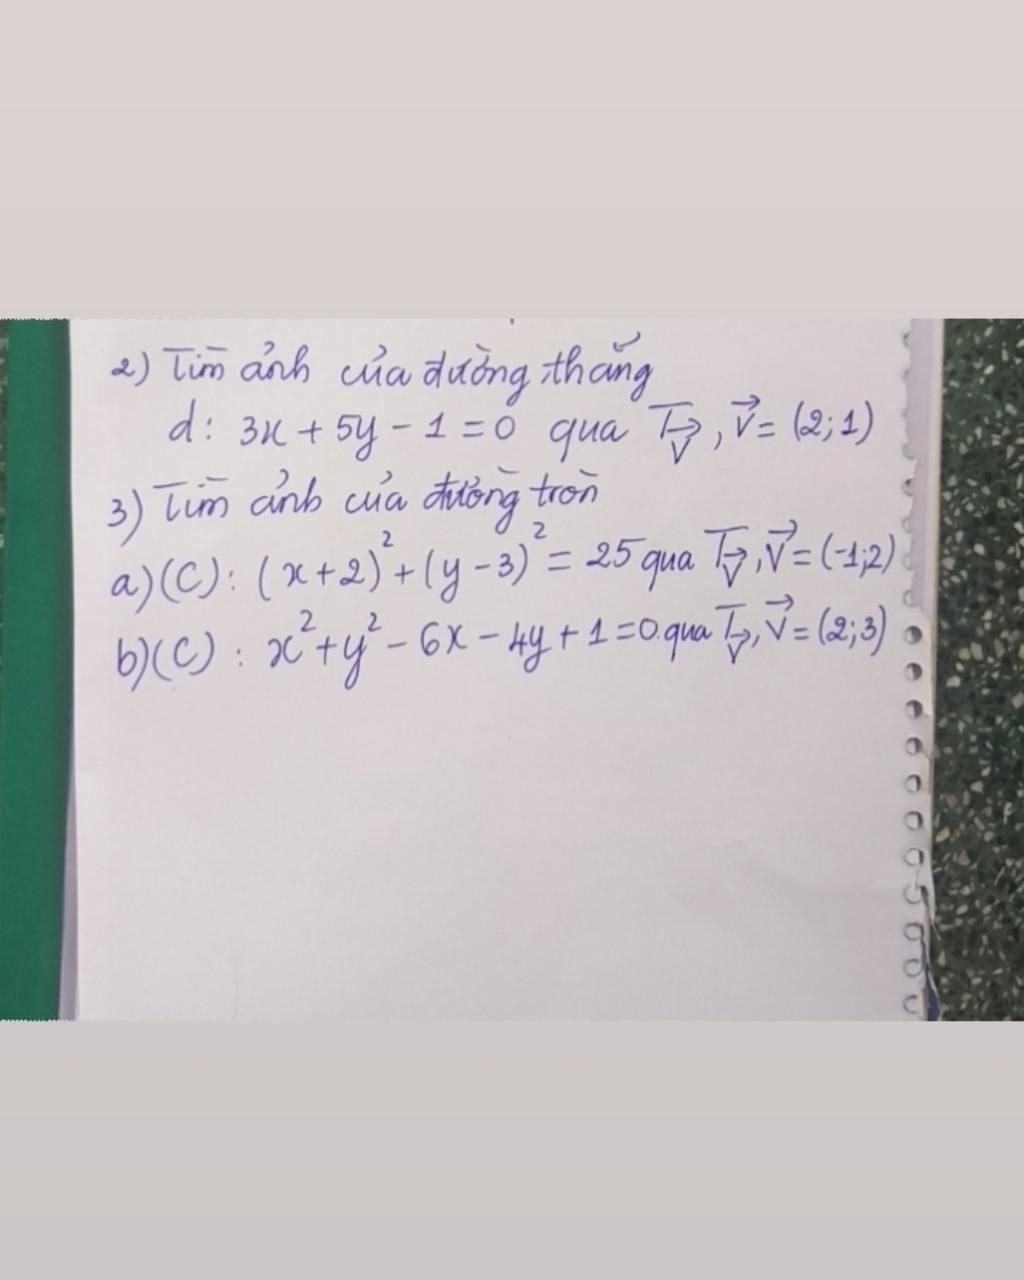 2) Tìm ảnh của đường thẳng
d: 3x + 5y - 1 = 0 qua T_v⃗, v⃗ = (2; 1)
3) Tìm ảnh của đường tròn
a) (C): (x+2)² + (y-3)² = 25 qua T_v⃗, v⃗ = (-1;2)
b) (C): x² + y² - 6x - 4y + 1 = 0. qua T_v⃗, v⃗ = (2;3)